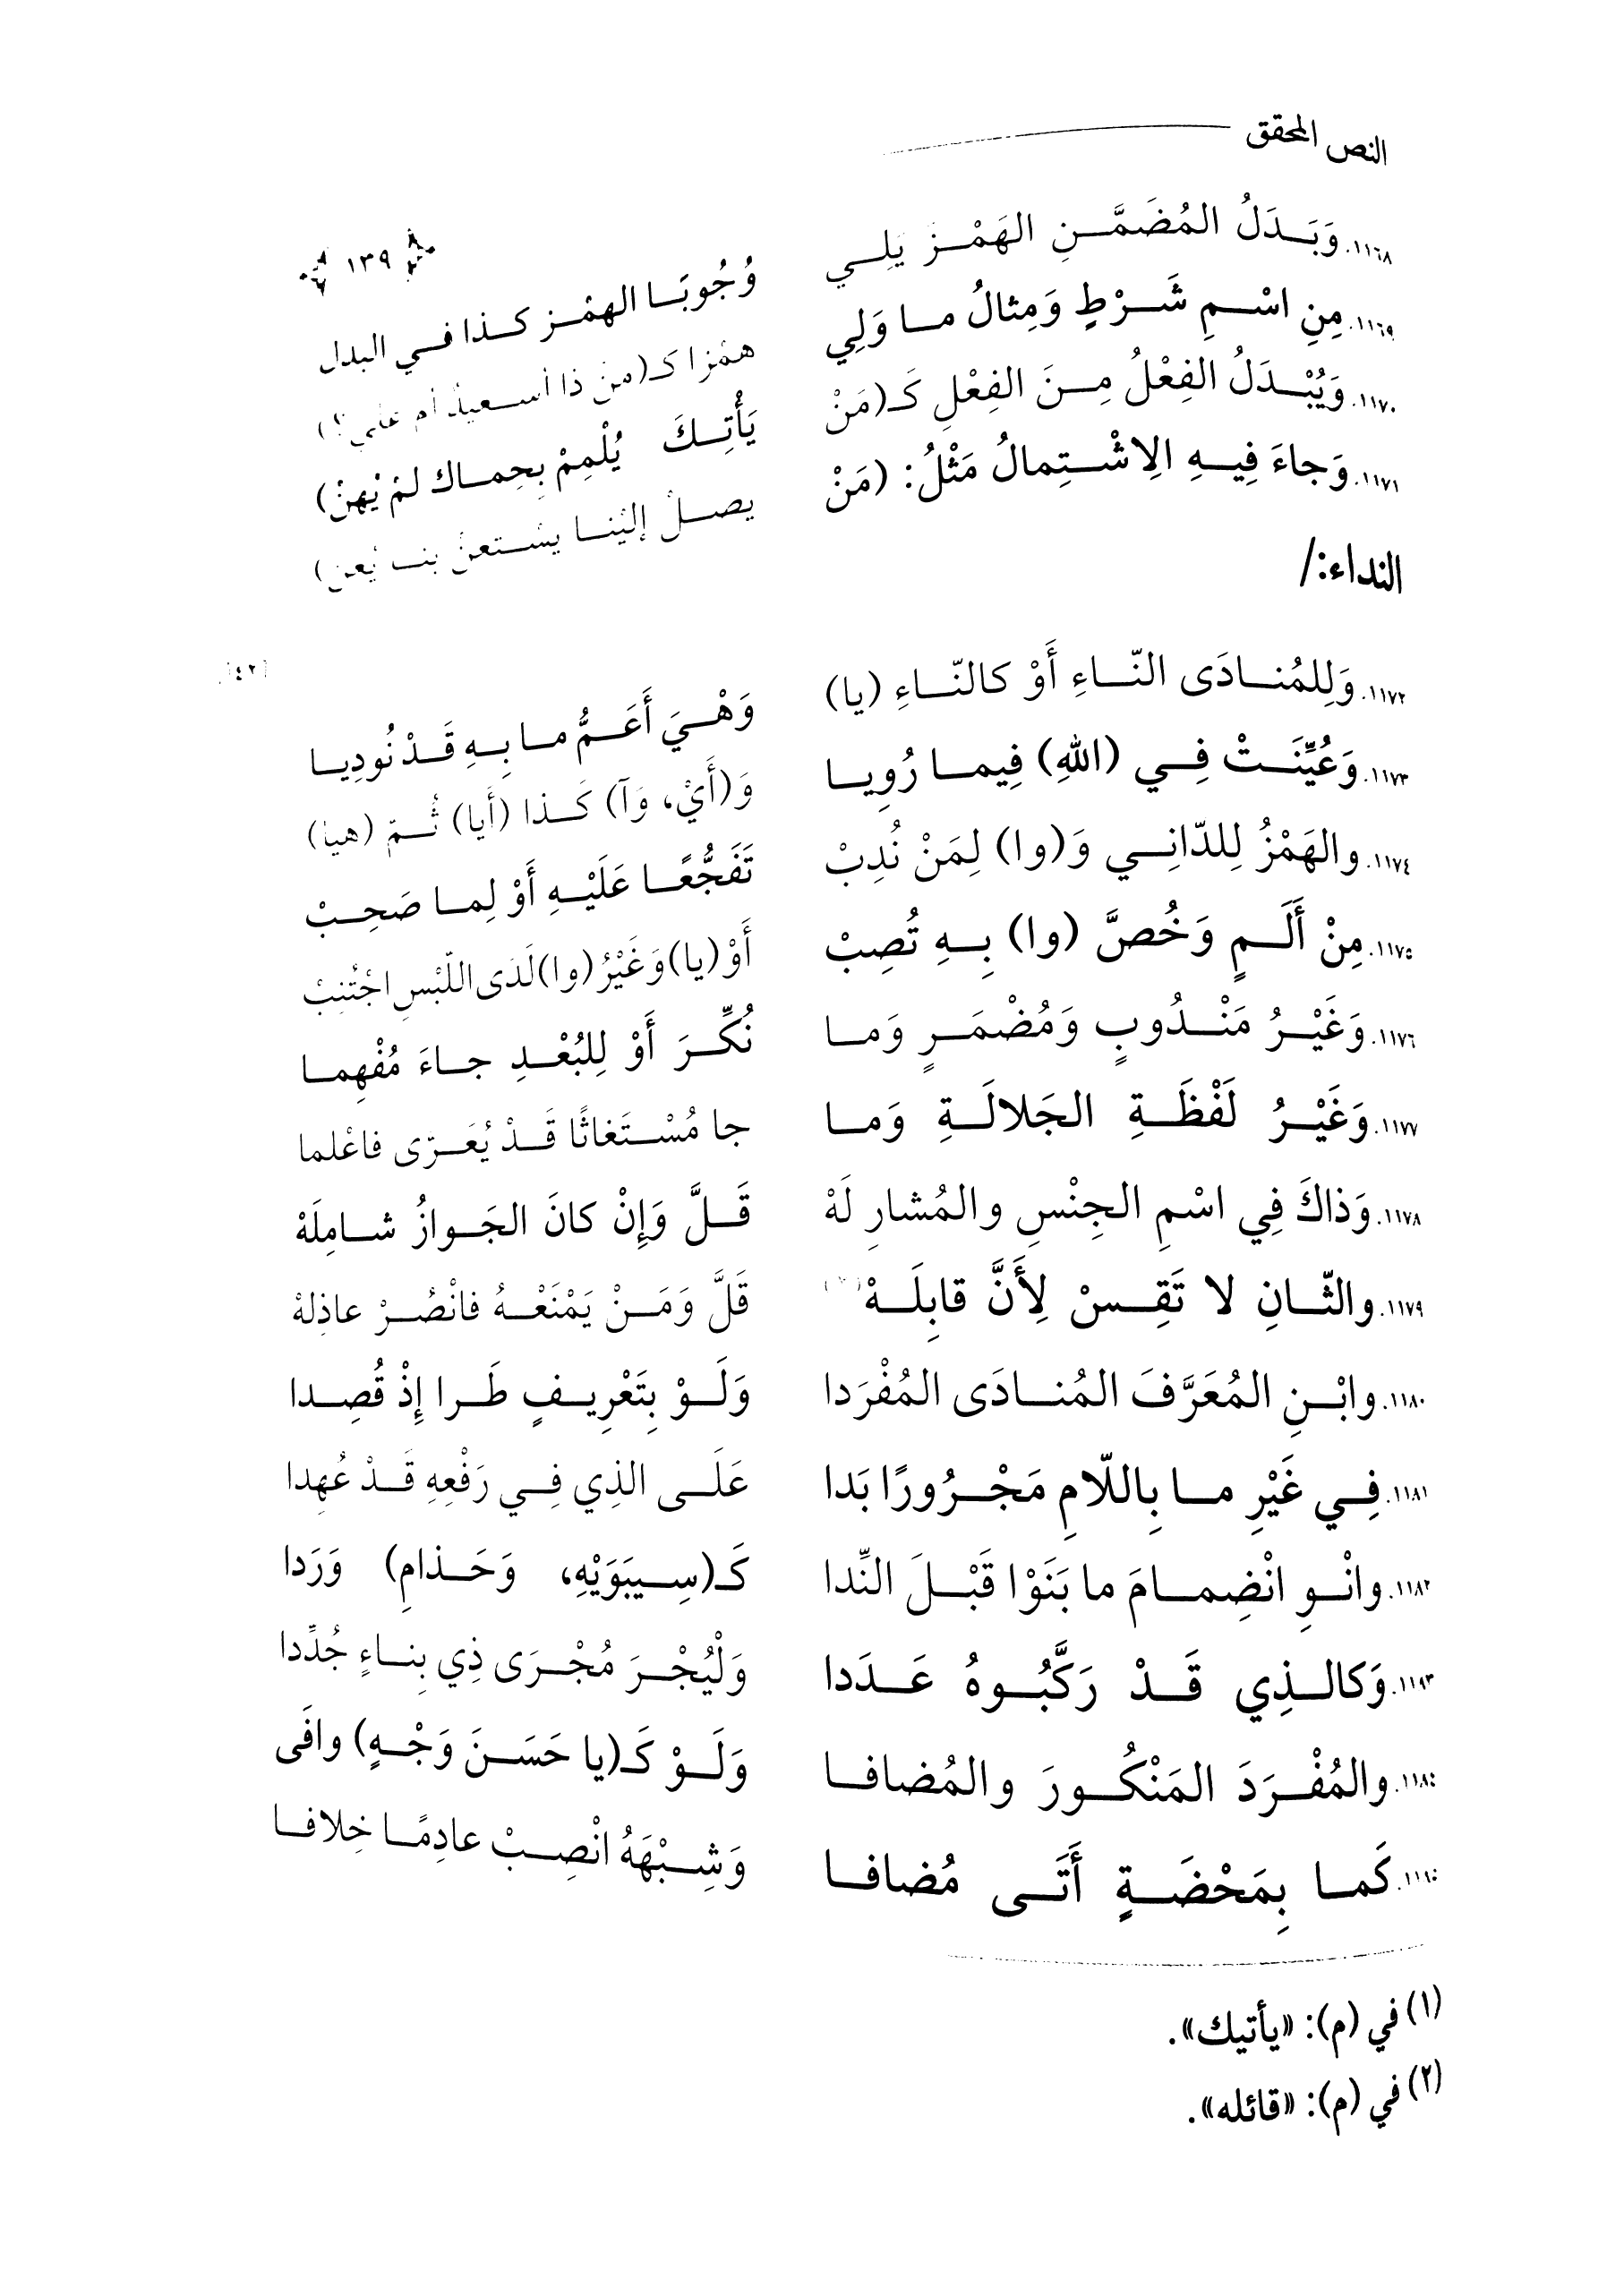 النص المحقق
١٣٩
١١٦٨. وَبَدَلُ المُضَمَّنِ الهَمْزَ يَلِي وُجُوبًا الهمْز كذا في البدل
١١٦٩. مِنِ اسْمِ شَرْطٍ وَمِثالُ ما وَلِي همْزا كـ(من ذا أسعيدٌ أم علي؟)
١١٧٠. وَيُبْدَلُ الفِعْلُ مِنَ الفِعْلِ كَـ(مَنْ يَأْتِكَ يُلْمِمْ بِحِماك لمْ يُهنْ)
١١٧١. وَجاءَ فِيهِ الِاشْتِمالُ مَثْلُ: (مَنْ يصلْ إليْنا يسْتعنْ بنا يُعن)
النداء:/
[٤٢]
١١٧٢. وَلِلمُنادَى النّاءِ أَوْ كالنّاءِ (يا) وَهْيَ أَعَمُّ ما بِهِ قَدْ نُودِيا
١١٧٣. وَعُيِّنَتْ فِي (اللهِ) فِيما رُوِيا وَ(أَيْ، وَآ) كَذا (أَيا) ثُمّ (هيا)
١١٧٤. والهَمْزُ لِلدّانِي وَ(وا) لِمَنْ نُدِبْ تَفَجُّعًا عَلَيْهِ أَوْ لِما صَحِبْ
١١٧٥. مِنْ أَلَمٍ وَخُصَّ (وا) بِهِ تُصِبْ أَوْ (يا) وَغَيْرُ (وا) لَدَى اللّبْسِ اجْتُنِبْ
١١٧٦. وَغَيْرُ مَنْدُوبٍ وَمُضْمَرٍ وَما نُكِّرَ أَوْ لِلبُعْدِ جاءَ مُفْهِما
١١٧٧. وَغَيْرُ لَفْظَةِ الجَلالَةِ وَما جا مُسْتَغاثًا قَدْ يُعَرّى فاعْلما
١١٧٨. وَذاكَ فِي اسْمِ الجِنْسِ والمُشارِ لَهْ قَلَّ وَإِنْ كانَ الجَوازُ شامِلَهْ
١١٧٩. والثّانِ لا تَقِسْ لِأَنَّ قابِلَهْ(٢) قَلَّ وَمَنْ يَمْنَعْهُ فانْصُرْ عاذِلهْ
١١٨٠. وابْنِ المُعَرَّفَ المُنادَى المُفْرَدا وَلَوْ بِتَعْرِيفٍ طَرا إِذْ قُصِدا
١١٨١. فِي غَيْرِ ما بِاللّامِ مَجْرُورًا بَدا عَلَى الذِي فِي رَفْعِهِ قَدْ عُهِدا
١١٨٢. وانْوِ انْضِمامَ ما بَنَوْا قَبْلَ النِّدا كَـ(سِيبَوَيْهِ، وَحَذامِ) وَرَدا
١١٨٣. وَكالذِي قَدْ رَكَّبُوهُ عَدَدا وَلْيُجْرَ مُجْرَى ذِي بِناءٍ جُدِّدا
١١٨٤. والمُفْرَدَ المَنْكُورَ والمُضافا وَلَوْ كَـ(يا حَسَنَ وَجْهٍ) وافَى
١١٨٥. كَما بِمَحْضَةٍ أَتَى مُضافا وَشِبْهَهُ انْصِبْ عادِمًا خِلافا
(١) في (م): «يأتيك».
(٢) في (م): «قائله».